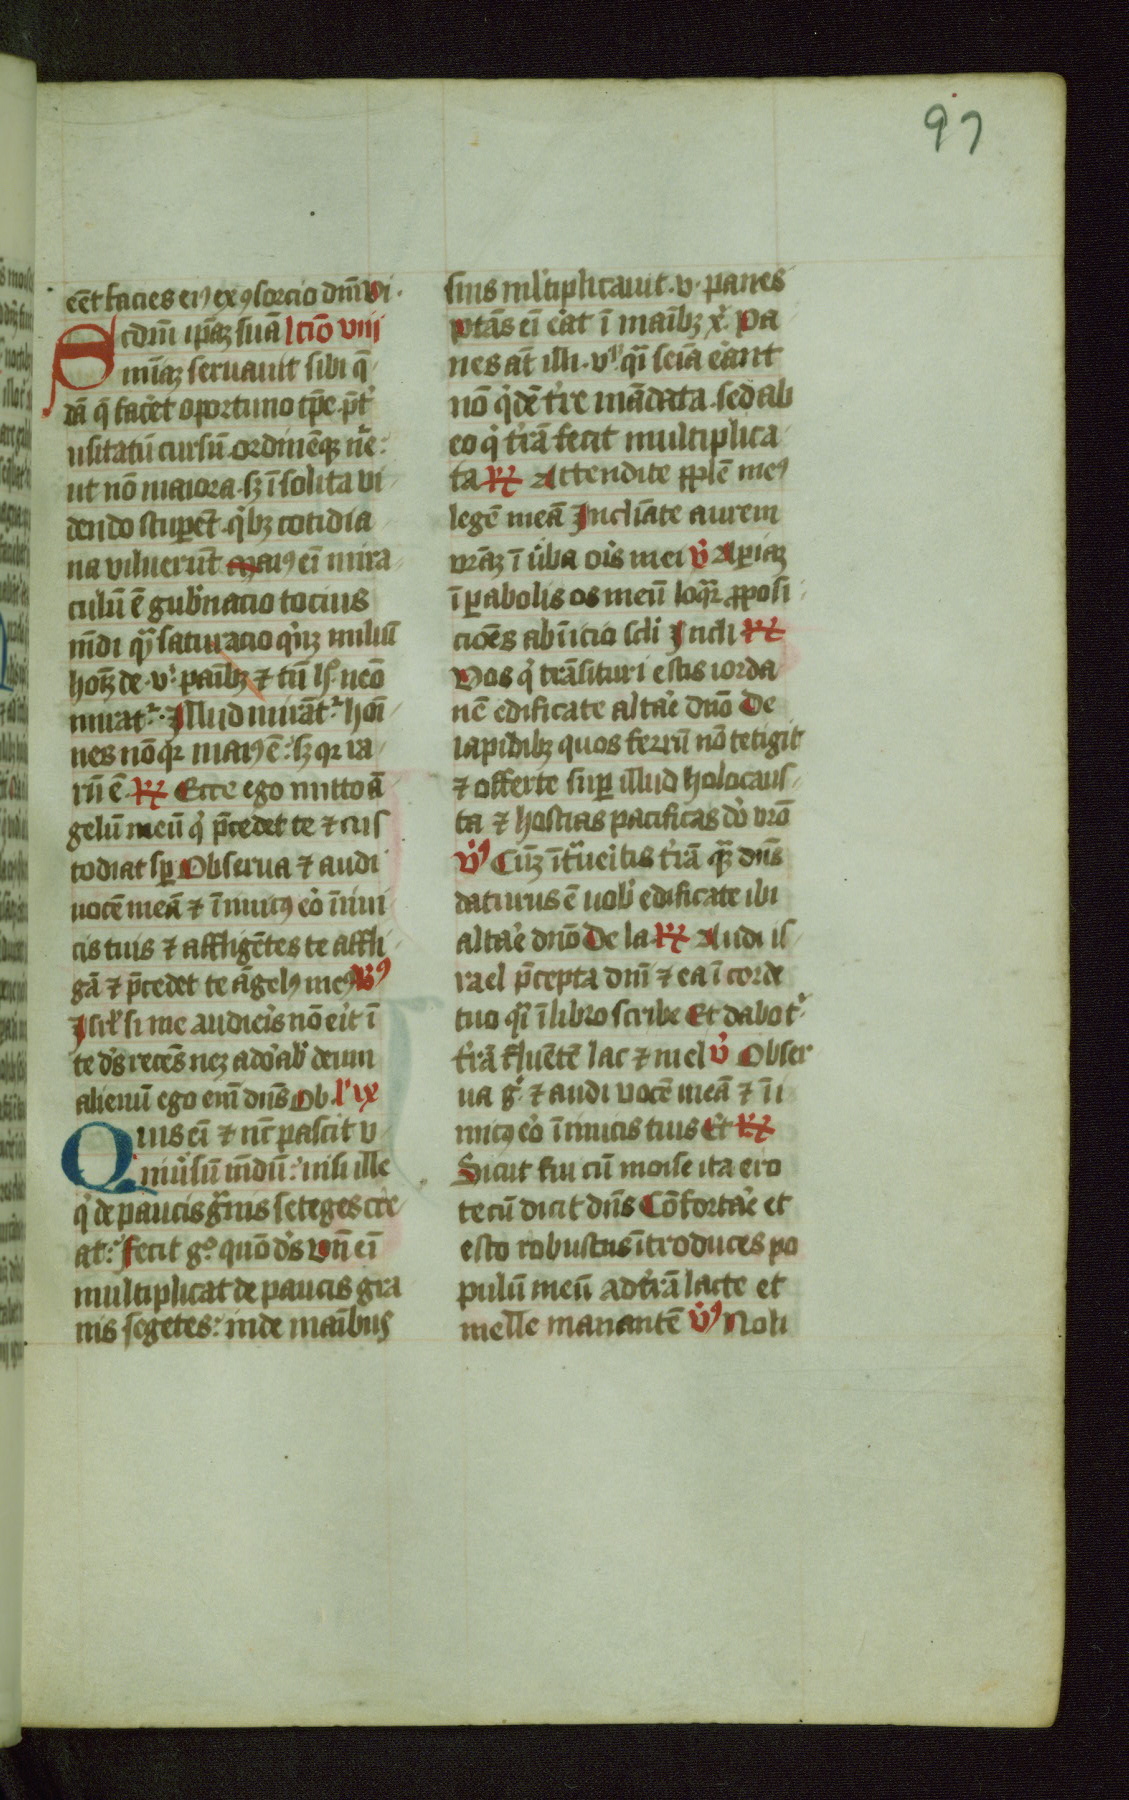 97
eēt facies ei⁹ ex ꝯsorcio dn̄i Vi.
Scdm̄ ip̄aꝫ suā lctō viii
mīaꝫ seruavit sibi q̄
dā q̄ facēt oportuno tp̄e. p̄t
usitatū cursū ordinēqꝫ nr̄e:
ut nō maiora. sꝫ īsolita vi
dendo stuper̄t. qͥbꝫ cotidia
na viluerūt maiꝰ eī mira
culū ē gub̓nacio tocius
mūdi
hoīm de .vͥ. panībꝫ ⁊ tn̄ h̓ nēo
mirat͛. Illud mirāt͛ hoī
nes nō qͥꝛ maiꝰ ē: sꝫ qꝛ ra
rū ē. R Ecce ego mitto ā
gelū meū qͥ p̄cedet te ⁊ cus
todiat sꝑ Observa ⁊ audi
uocē meā ⁊ īimicꝰ eͦo īimi
cis tuis ⁊ affligētes te affli
gā ⁊ p̄cedet te āgelꝰ meꝰ Vꝰ
Isrl̓ si me audieis nō eͥt ī
te dꝰs recēs neꝫ adoͬab̓ deum
alienū ego enī dn̄s Ob. lͦ ix
Quis eī ⁊ nc̄ pascit v
niu̓sū mūdū: nisi ille
qͥ de paucis gͣnis segetes cre
at: fecit gͦ quō dꝰs Vn̄ eī
multiplicat de paucis gra
nis segetes: inde manībus
suis ml̓tiplicauit .v. panes
ptās eī eͣt ī manībꝫ xͥ. Pa
nes at̄ illi .vͥ. qͣi seīa eͣnt
nō qͥdē tͥre mādata. sed ab
eo qͥ tͥrā fecit multiplica
ta R Attendite ppl̄e meꝰ
legē meā Inclinate aurem
vrāꝫ ī u̓ba oris mei V̓ Aꝑiaꝫ
ī ꝑabolis os meū loqͣr ꝓposi
cioēs ab īicio scl̓i Incli R
Vos qͥ trāsituri estis iorda
nē edificate altaͬe dn̄o De
lapidibꝫ quos ferrū nō tetigit
⁊ offerte suꝑ illud holocaus
ta ⁊ hostias pacificas dͦo vrō
V̓ꝰ Cūꝫ ītͣueitis tͥrā quāꝫ dn̄s
daturus ē uob̓ edificate ibi
altaͬe dn̄o De la. R Audi is
rael p̄cepta dn̄i ⁊ ea ī corde
tuo qͣi ī libro scribe Et dabo t͛
tͥrā fluētē lac ⁊ mel V̓ Obser
ua gͥ ⁊ audi vocē meā ⁊ īi
micꝰ eͦo īimicis tuis Et R
Sicut fui cū moise ita ero
tecū dicit dn̄s Cōfortaͬe et
esto robustus ītroduces po
pulū meū ad tͥrā lacte et
melle manantē V̓ꝰ Noli